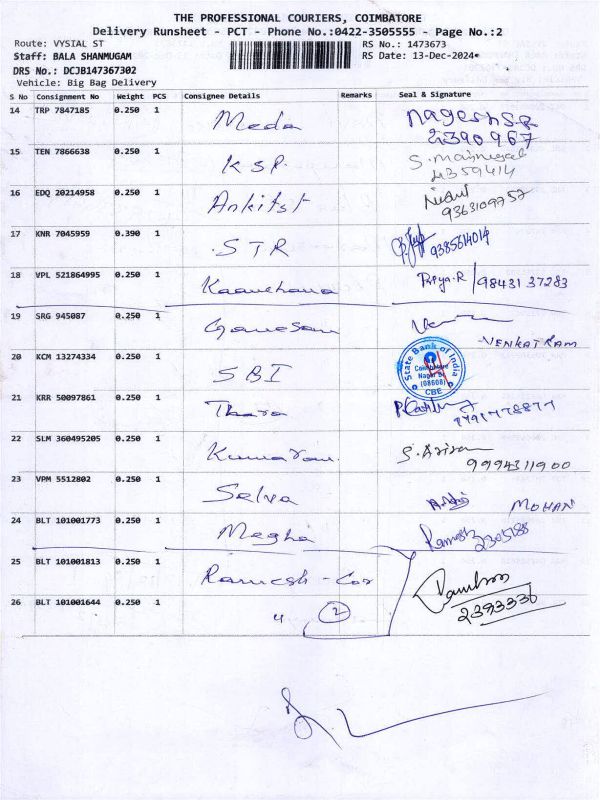 THE PROFESSIONAL COURIERS, COIMBATORE
Delivery Runsheet - PCT - Phone No.:0422-3505555 - Page No.:2
Route: VYSIAL ST RS No.: 1473673
Staff: BALA SHANMUGAM RS Date: 13-Dec-2024
DRS No.: DCJB147367302
Vehicle: Big Bag Delivery
S No Consignment No Weight PCS Consignee Details Remarks Seal & Signature
14 TRP 7847185 0.250 1 Meda Nagesh S.R
2390967
15 TEN 7866638 0.250 1 KSP.
4359414
16 EDQ 20214958 0.250 1 Ankitst
9363109757
17 KNR 7045959 0.390 1 STR 9385614014
18 VPL 521864995 0.250 1 Kaanchana Priya.R / 98431 37283
19 SRG 945087 0.250 1 Ganesan
VENKATRAM
20 KCM 13274334 0.250 1 SBI State Bank of India
Coimbatore
Nagar Br.
(08608)
CBE
21 KRR 50097861 0.250 1 Thara
22 SLM 360495205 0.250 1 Kumaran
9994311900
23 VPM 5512802 0.250 1 Selva MOHAN
24 BLT 101001773 0.250 1 Megha Ramesh
2305188
25 BLT 101001813 0.250 1 Ramesh - Car
26 BLT 101001644 0.250 1 " 2 2393330